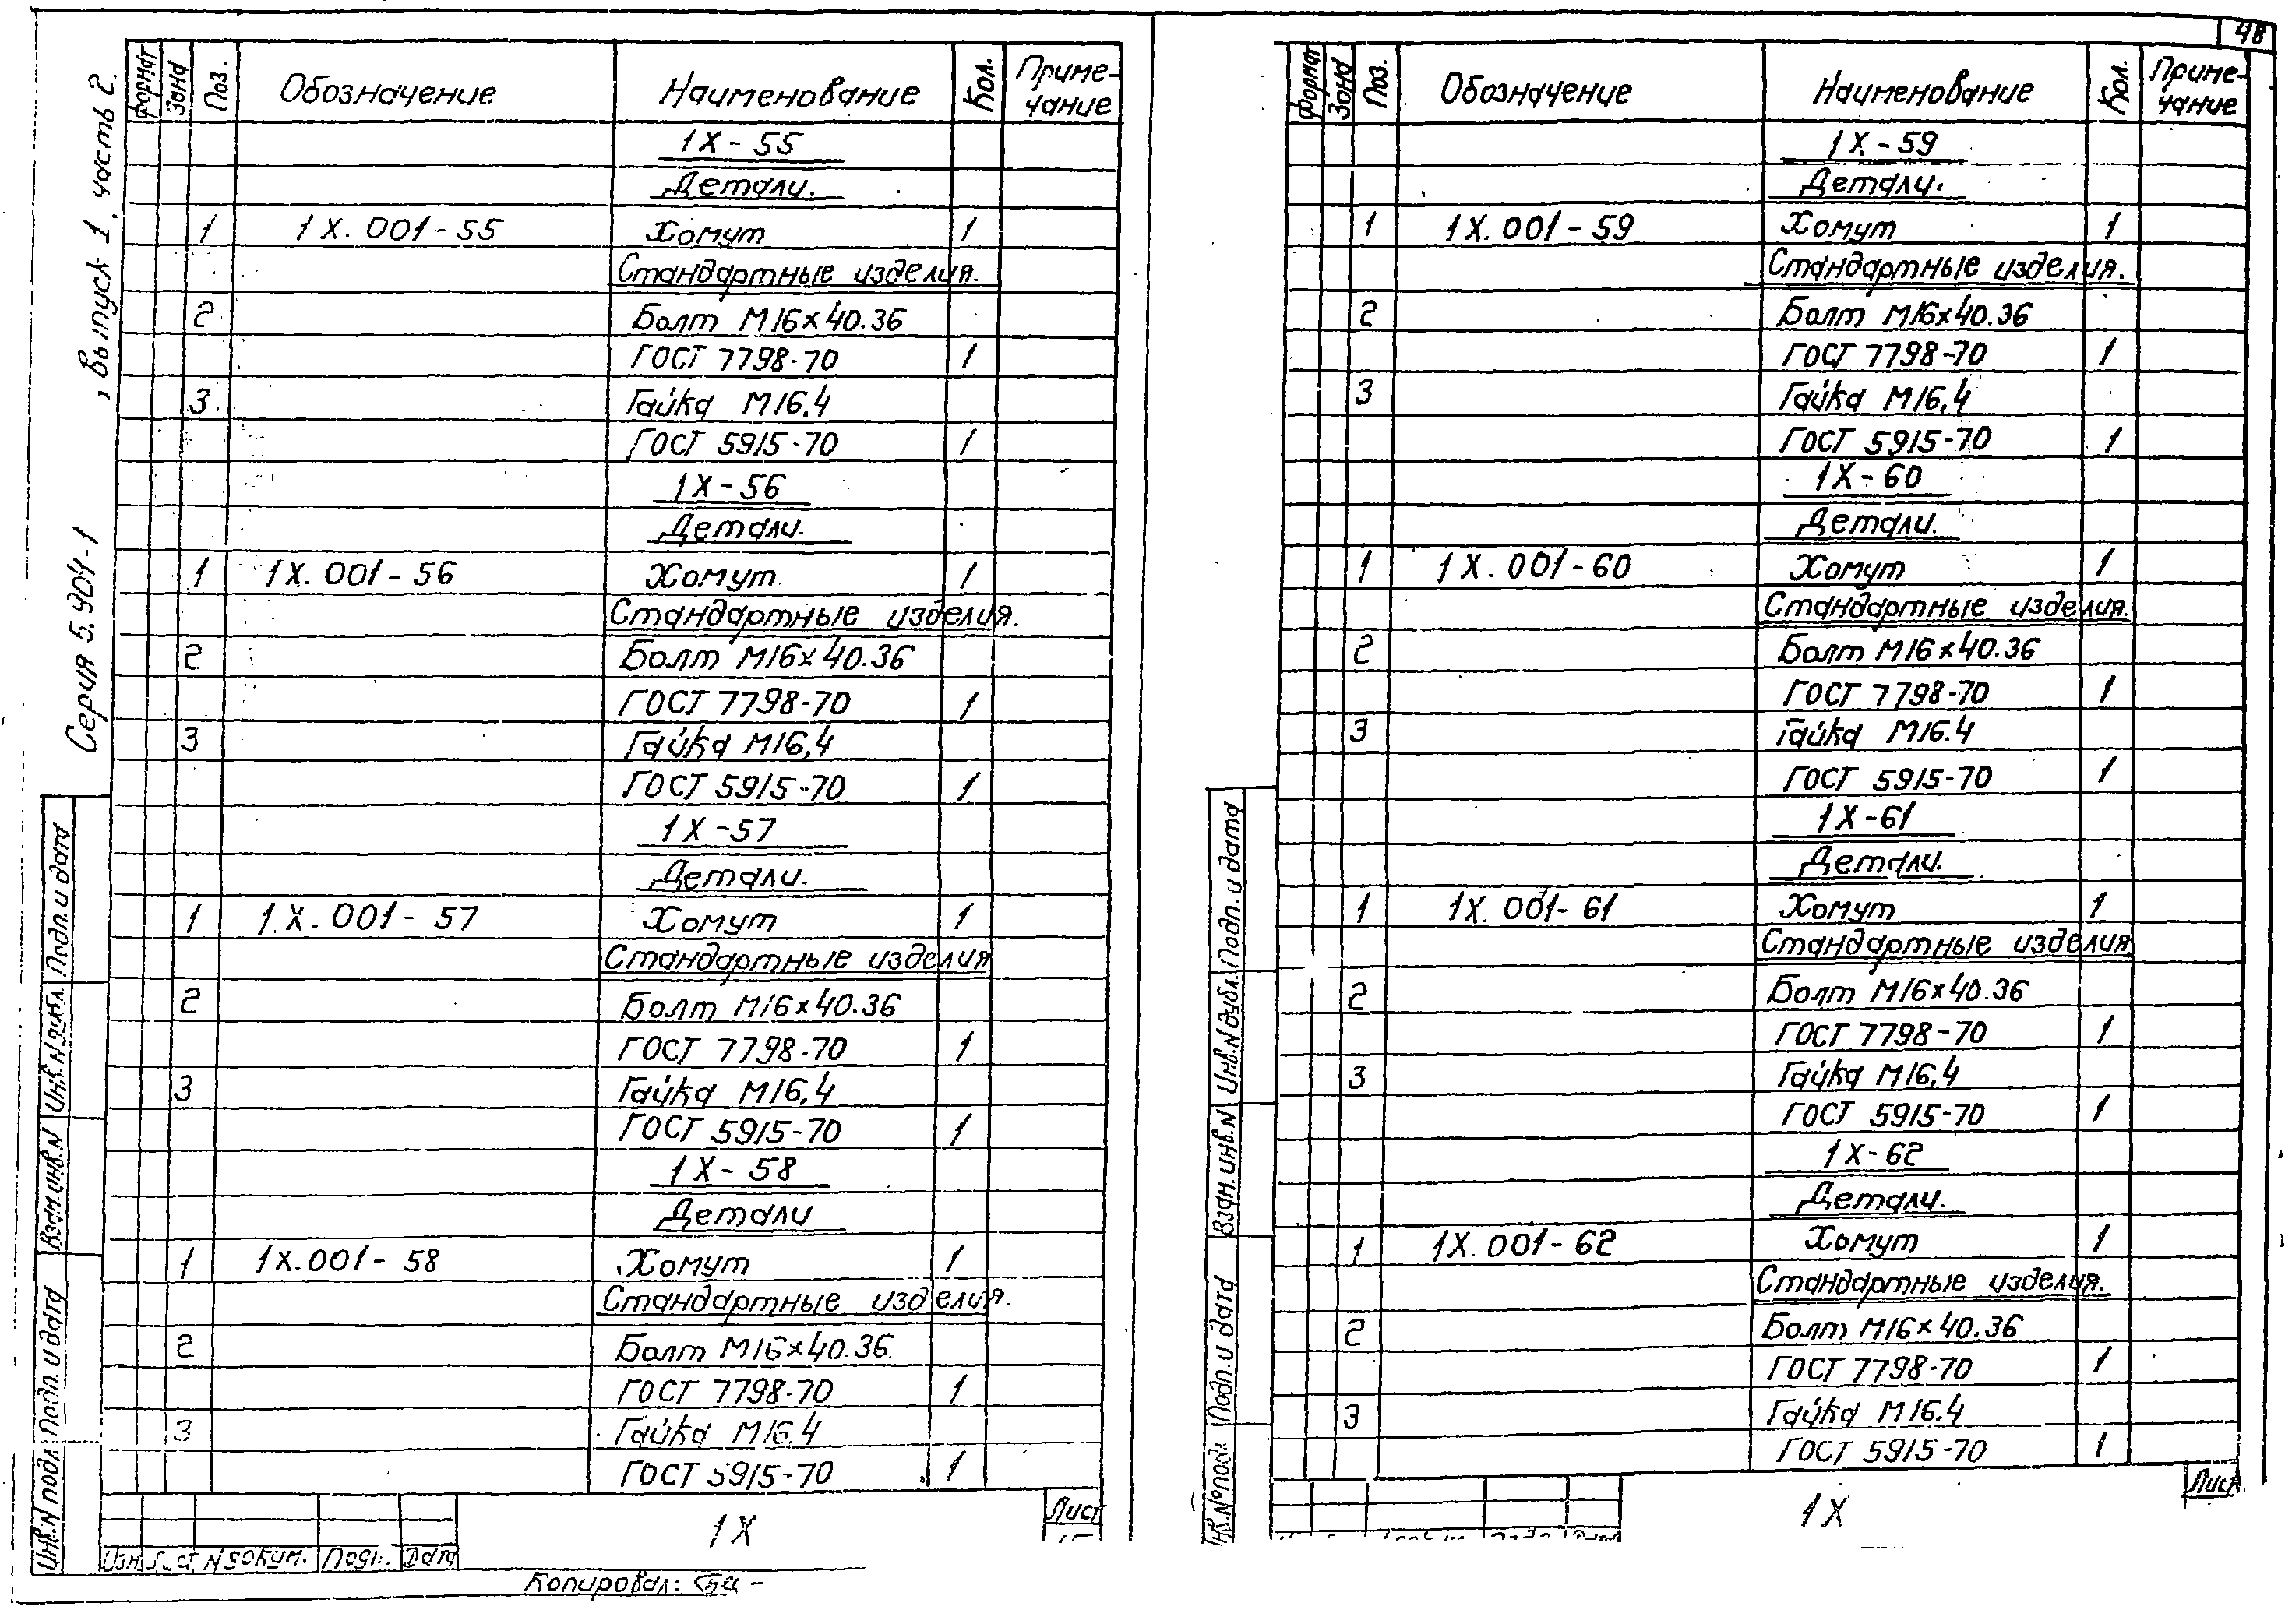 48
Серия 5.904-1, выпуск 1. часть 2.
Формат Зона Поз. Обозначение Наименование Кол. Приме-
чание
1Х-55
Детали.
1 1Х.001-55 Хомут 1
Стандартные изделия.
2 Болт М16х40.36
ГОСТ 7798-70 1
3 Гайка М16,4
ГОСТ 5915-70 1
1Х-56
Детали.
1 1Х.001-56 Хомут 1
Стандартные изделия.
2 Болт М16х40.36
ГОСТ 7798-70 1
3 Гайка М16,4
ГОСТ 5915-70 1
1Х-57
Детали.
1 1Х.001-57 Хомут 1
Стандартные изделия
2 Болт М16х40.36
ГОСТ 7798-70 1
3 Гайка М16,4
ГОСТ 5915-70 1
1Х-58
Детали
1 1Х.001-58 Хомут 1
Стандартные изделия.
2 Болт М16х40.36.
ГОСТ 7798-70 1
3 Гайка М16,4
ГОСТ 5915-70 1
Инв.N подл. Подп. и дата Взам.инв.N Инв.N дубл. Подп. и дата
1Х
Лист
N докум. Дата
Копировал:
Формат Зона Поз. Обозначение Наименование Кол. Приме-
чание
1Х-59
Детали.
1 1Х.001-59 Хомут 1
Стандартные изделия.
2 Болт М16х40.36
ГОСТ 7798-70 1
3 Гайка М16,4
ГОСТ 5915-70 1
1Х-60
Детали.
1 1Х.001-60 Хомут 1
Стандартные изделия.
2 Болт М16х40.36
ГОСТ 7798-70 1
3 Гайка М16.4
ГОСТ 5915-70 1
1Х-61
Детали.
1 1Х.001-61 Хомут 1
Стандартные изделия
2 Болт М16х40.36
ГОСТ 7798-70 1
3 Гайка М16,4
ГОСТ 5915-70 1
1Х-62
Детали.
1 1Х.001-62 Хомут 1
Стандартные изделия.
2 Болт М16х40.36
ГОСТ 7798-70 1
3 Гайка М16.4
ГОСТ 5915-70 1
Подп. и дата Взам.инв.N Инв.N дубл. Подп. и дата
1Х
Лист